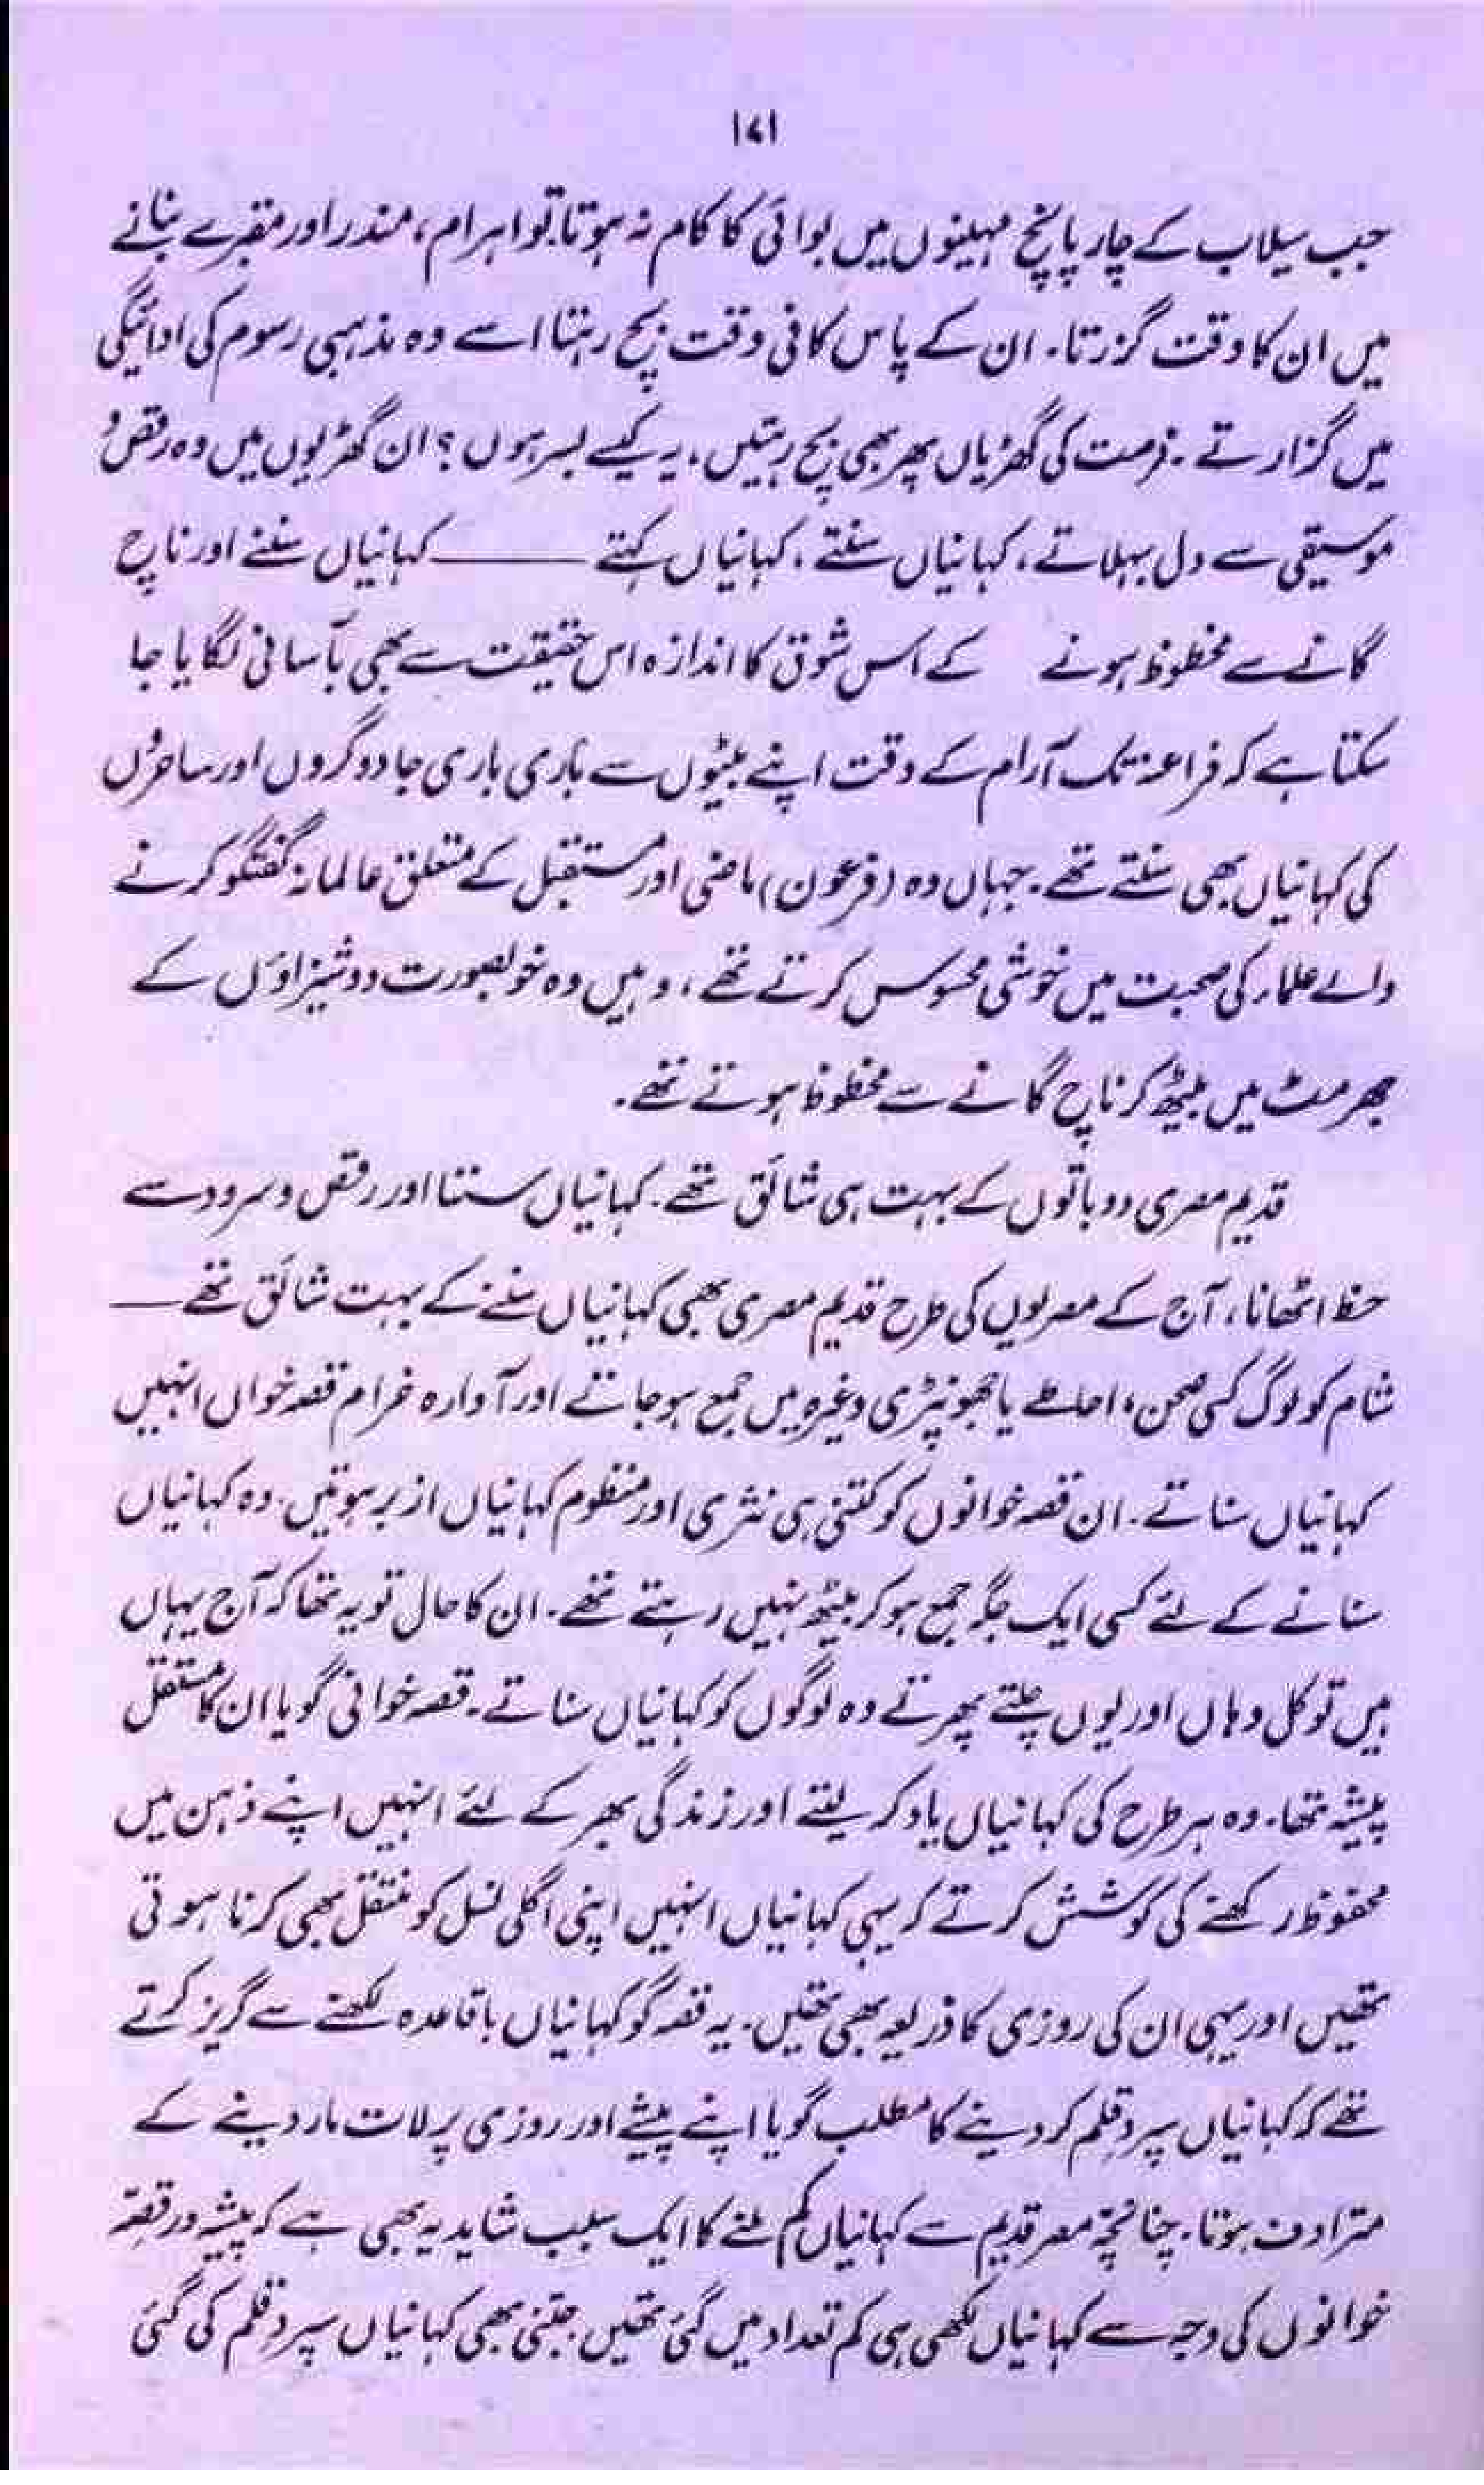 ۱۷۱
جب سیلاب کے چار پانچ مہینوں میں بوائی کا کام نہ ہوتا تو اہرام، مندر اور مقبرے بنانے
میں ان کا وقت گزرتا۔ ان کے پاس کافی وقت بچ رہتا اسے وہ مذہبی رسوم کی ادائیگی
میں گزارتے۔ فرصت کی گھڑیاں پھر بھی بچ رہتیں، یہ کیسے بسر ہوں؟ ان گھڑیوں میں وہ رقص و
موسیقی سے دل بہلاتے، کہانیاں سنتے، کہانیاں کہتے ——— کہانیاں سننے اور ناچ
گانے سے محظوظ ہونے کے اس شوق کا اندازہ اس حقیقت سے بھی بآسانی لگایا جا
سکتا ہے کہ فراعنہ تک آرام کے وقت اپنے بیٹوں سے باری باری جادوگروں اور ساحروں
کی کہانیاں بھی سنتے تھے۔ جہاں وہ (فرعون) ماضی اور مستقبل کے متعلق عالمانہ گفتگو کرنے
والے علماء کی صحبت میں خوشی محسوس کرتے تھے، وہیں وہ خوبصورت دوشیزاؤں کے
جھرمٹ میں بیٹھ کر ناچ گانے سے محظوظ ہوتے تھے۔
قدیم مصری دو باتوں کے بہت ہی شائق تھے۔ کہانیاں سننا اور رقص و سرود سے
حظ اٹھانا، آج کے مصریوں کی طرح قدیم مصری بھی کہانیاں سننے کے بہت شائق تھے —
شام کو لوگ کسی صحن، احاطے یا جھونپڑی وغیرہ میں جمع ہو جاتے اور آوارہ خرام قصہ خواں انہیں
کہانیاں سناتے۔ ان قصہ خوانوں کو کتنی ہی نثری اور منظوم کہانیاں ازبر ہوتیں۔ وہ کہانیاں
سنانے کے لئے کسی ایک جگہ جمع ہو کر بیٹھ نہیں رہتے تھے۔ ان کا حال تو یہ تھا کہ آج یہاں
ہیں تو کل وہاں اور یوں چلتے پھرتے وہ لوگوں کو کہانیاں سناتے۔ قصہ خوانی گویا ان کا مستقل
پیشہ تھا۔ وہ ہر طرح کی کہانیاں یاد کر لیتے اور زندگی بھر کے لئے انہیں اپنے ذہن میں
محفوظ رکھنے کی کوشش کرتے کہ یہی کہانیاں انہیں اپنی اگلی نسل کو منتقل بھی کرنا ہوتی
تھیں اور یہی ان کی روزی کا ذریعہ بھی تھیں۔ یہ قصہ گو کہانیاں باقاعدہ لکھنے سے گریز کرتے
تھے کہ کہانیاں سپرد قلم کر دینے کا مطلب گویا اپنے پیشے اور روزی پر لات مار دینے کے
مترادف ہوتا۔ چنانچہ مصر قدیم سے کہانیاں کم ملنے کا ایک سبب شاید یہ بھی ہے کہ پیشہ ور قصہ
خوانوں کی وجہ سے کہانیاں لکھی ہی کم تعداد میں گئی تھیں۔ جتنی بھی کہانیاں سپرد قلم کی گئی